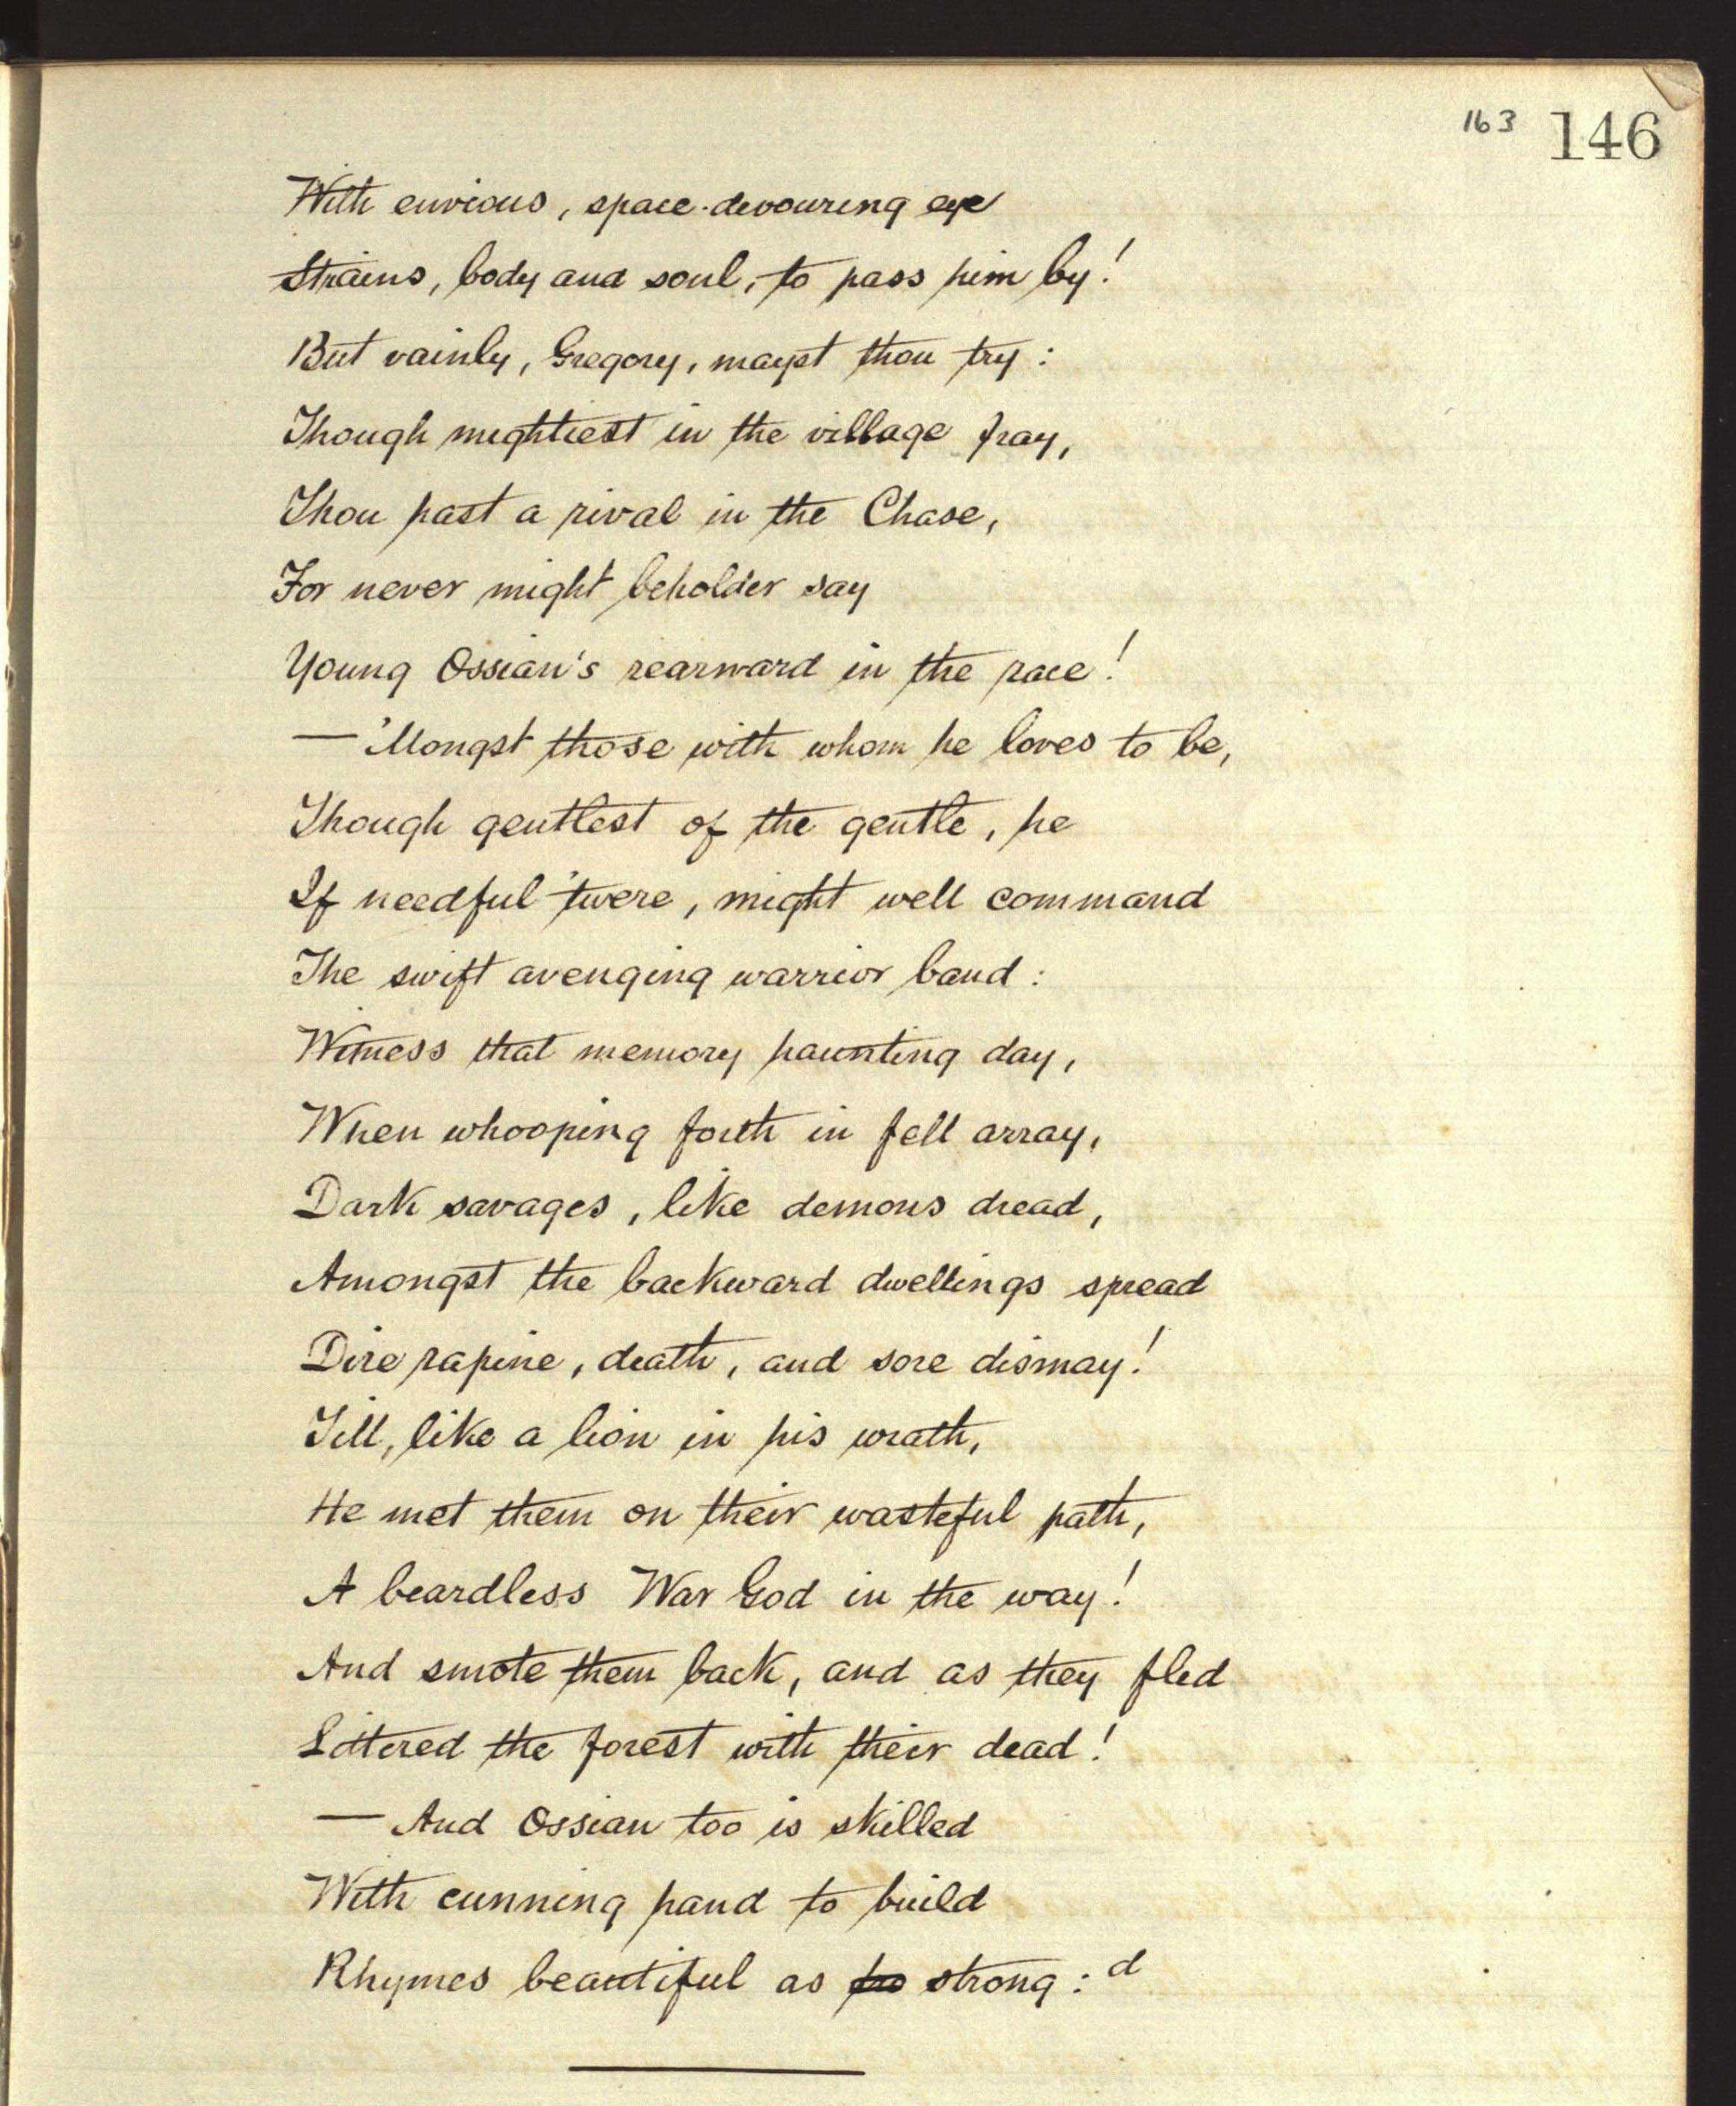 163 146
With envious, space-devouring eye
Strains, body and soul, to pass him by!
But vainly, Gregory, mayst thou try:
Though mightiest in the village fray,
Thou hast a rival in the Chase,
For never might beholder say
Young Ossian's rearward in the race!
— 'Mongst those with whom he loves to be,
Though gentlest of the gentle, he
If needful 'twere, might well command
The swift avenging warrior band:
Witness that memory haunting day,
When whooping forth in fell array,
Dark savages, like demons dread,
Amongst the backward dwellings spread
Dire rapine, death, and sore dismay!
Till, like a lion in his wrath,
He met them on their wasteful path,
A beardless War God in the way!
And smote them back, and as they fled
Littered the forest with their dead!
— And Ossian too is skilled
With cunning hand to build
Rhymes beautiful as strong: d